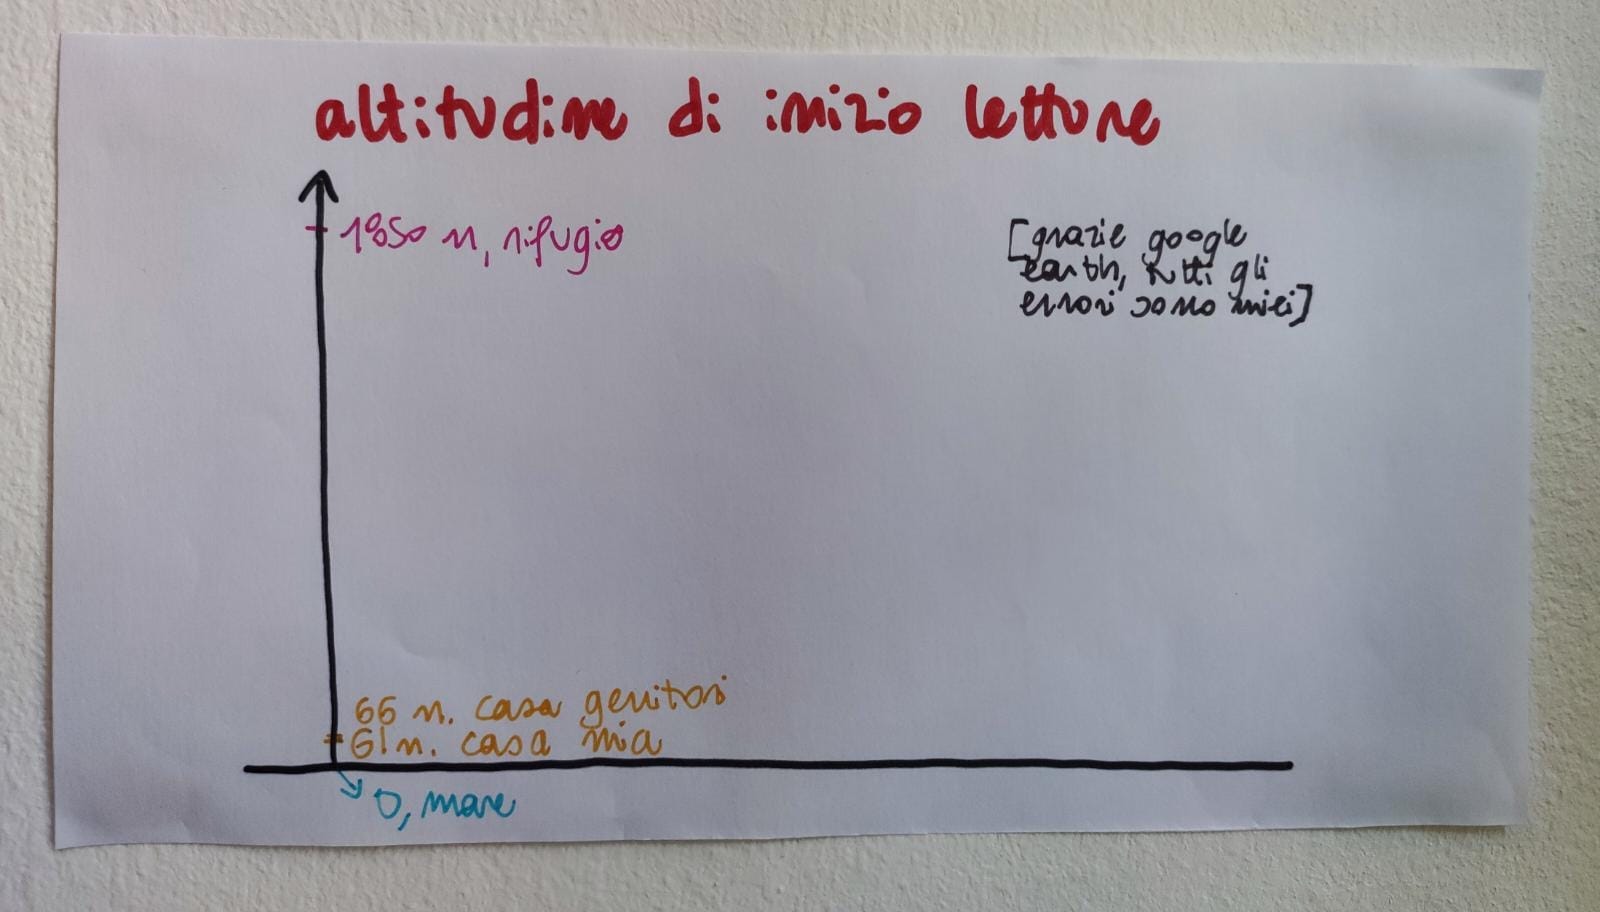 altitudine di inizio letture
1850 m, rifugio
[grazie google
earth, tutti gli
errori sono miei]
66 m. casa genitori
61 m. casa mia
0, mare